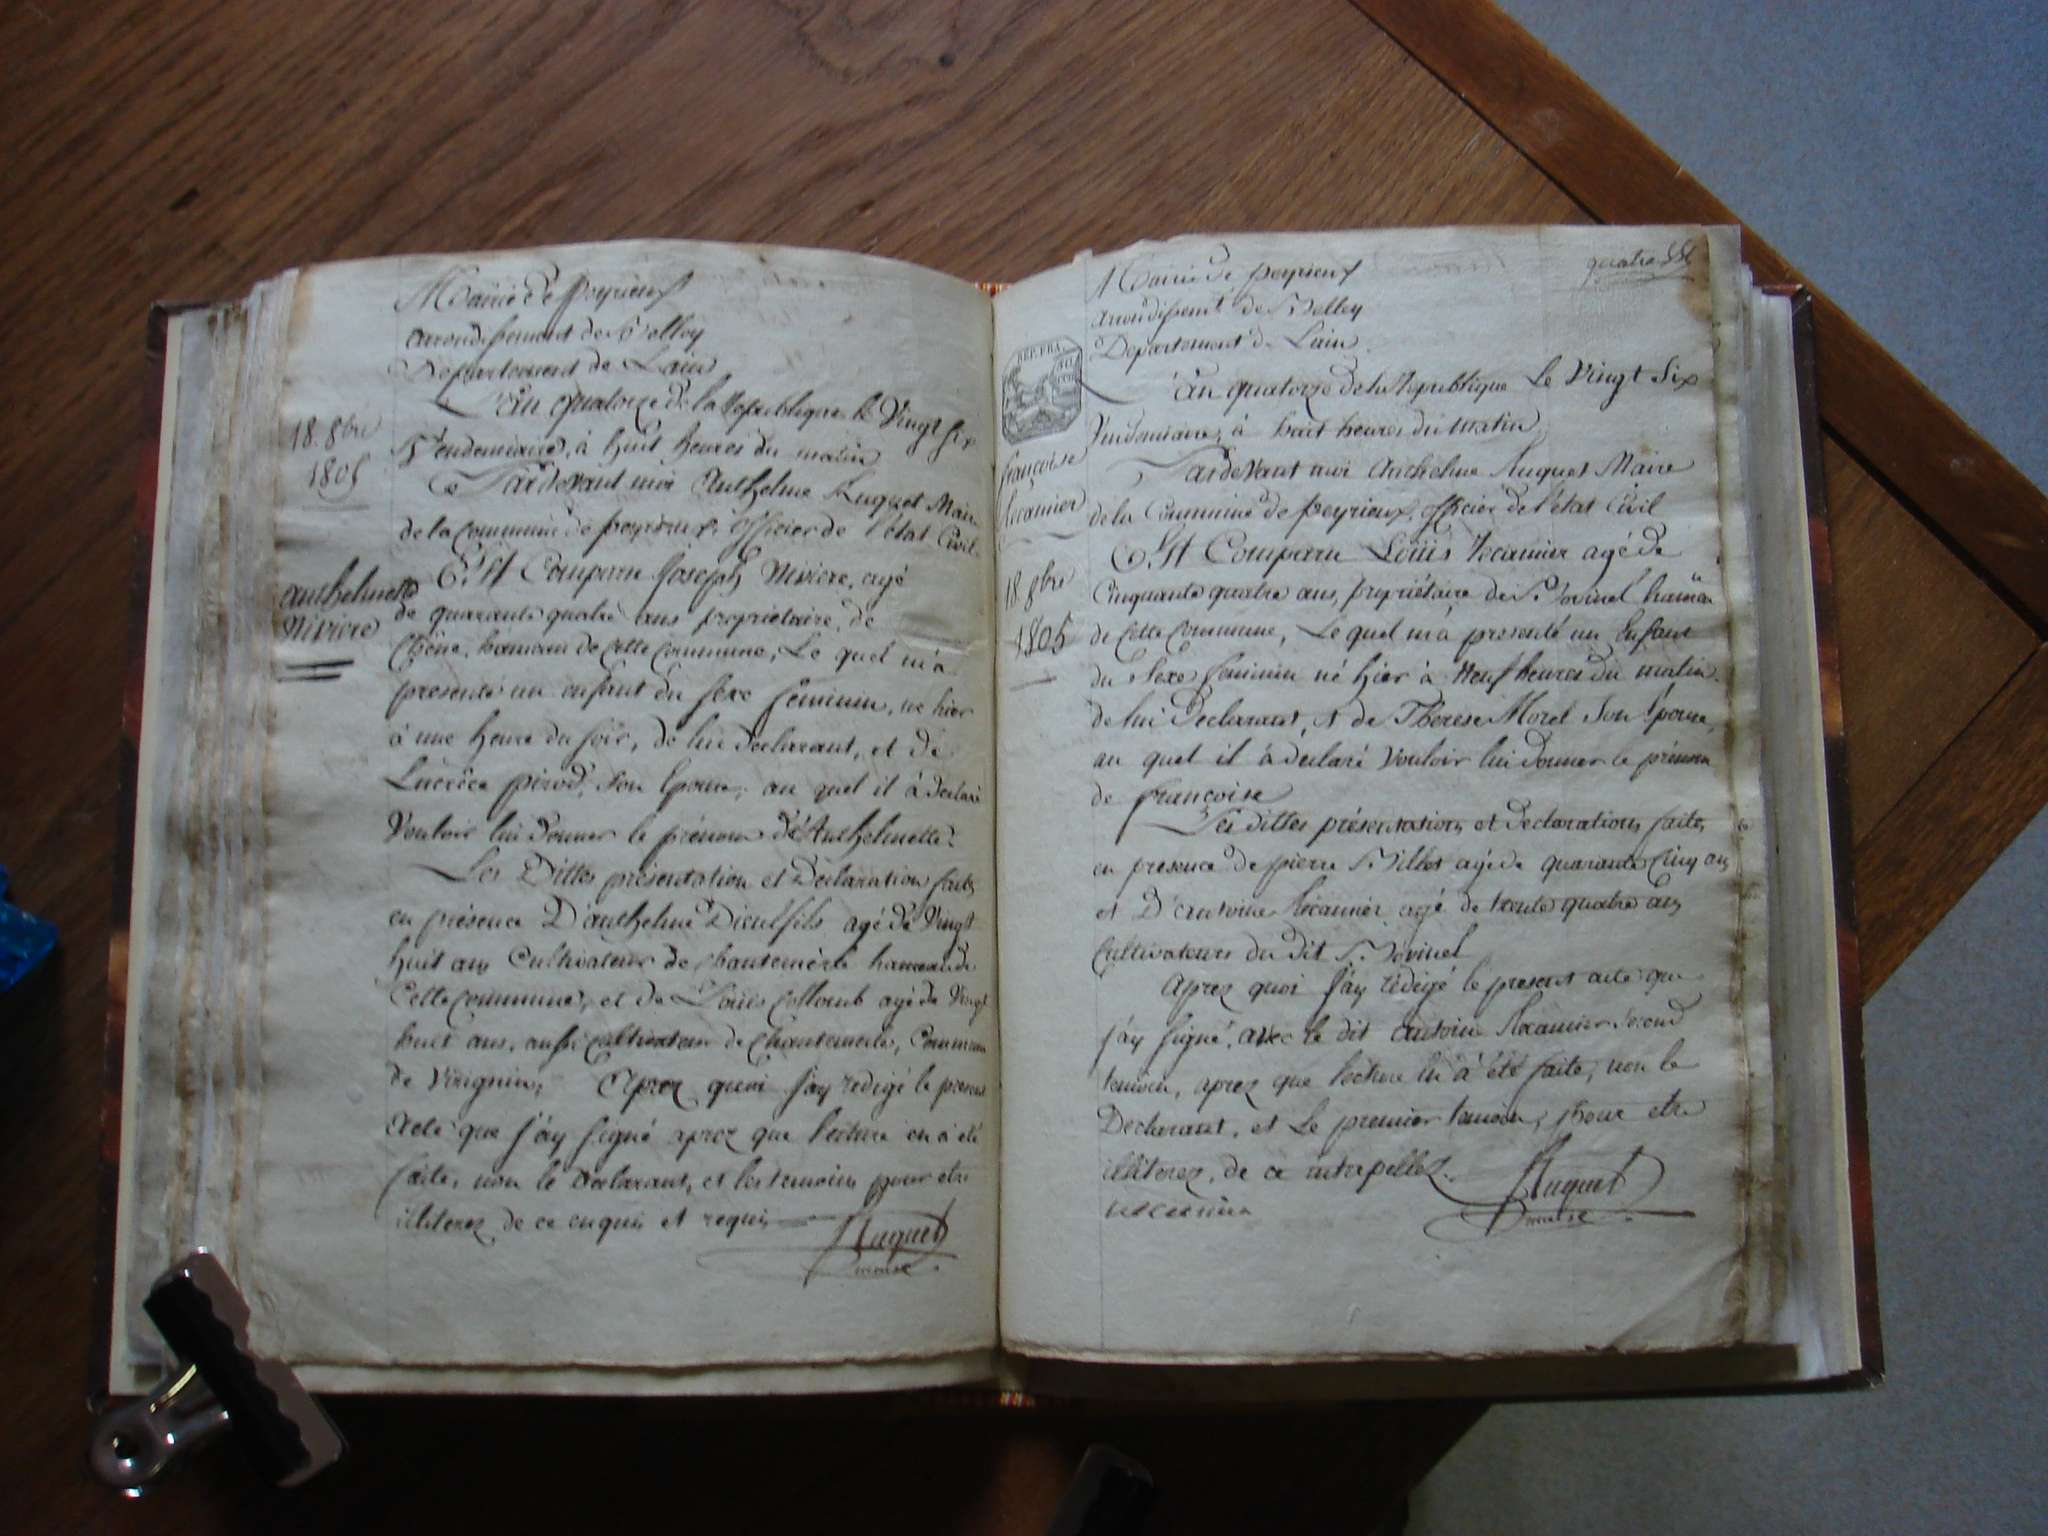 Mairie de Peyrieux
arrondissement de Belley
Departement de Lain
L'an quatorze de la Republique le Vingt six
Vendemiaire, à huit heures du matin
Pardevant moi Anthelme Huguet Maire
de la Commune de peyrieux, officier de l'état Civil
Est Comparu Joseph Niviere, agé
de quarante quatre ans propriétaire, de
Chêne, hameau de Cette Commune, Le quel m'a
presenté un enfant du sexe feminin, né hier
à une heure du soir, de lui declarant, et de
Lucrêce pirod, son Epouse, au quel il à declaré
Vouloir lui donner le prénom d'Anthelmette.
Les Dittes présentation et Déclaration faites
en présence D'anthelme Dieulfils agé de Vingt
huit ans Cultivateur de Chantemerle hameau de
Cette Commune, et de Louis Colloub agé de Vingt
huit ans, aussi cultivateur de Chantemerle, Commune
de Virignin, Aprez quoi j'ay redigé le present
Acte que j'ay signé aprez que lecture en a été
faite, non le declarant, et les temoins pour etre
illiterez de ce enquis et requis
Huguet
maire
18. 8bre
1805
anthelmette
Niviere
quatre
Mairie de peyrieux
arrondissemt de Belley
Departement de Lain
L'an quatorze de la Republique Le Vingt Six
Vendemiaire, à huit heures du Matin
Pardevant moi Anthelme Huguet Maire
de la Commune de Peyrieux, officier de l'état Civil
Est Comparu Loüis Récamier agé de
Cinquante quatre ans, propriétaire de St. hameau
de Cette Commune, Le quel m'a presenté un Enfant
du Sexe feminin né hier à Neuf heures du matin
de lui Declarant, et de Thérese Morel Son Epouse,
au quel il à declaré Vouloir lui donner le prénom
de françoise
Les dittes présentation et Declaration faites
en presence de pierre agé de quarante Cinq ans
et D'antoine Récamier agé de trente quatre ans
Cultivateurs du dit
Aprez quoi j'ay rédigé le present acte que
j'ay signé, avec le dit antoine Récamier second
temoin, aprez que lecture lui à été faite, non le
Declarant, et Le premier temoin, pour etre
illiterez, de ce interpellez.
récamier
Huguet
maire
REP. FRA.
françoise
Récamier
18. 8bre
1805